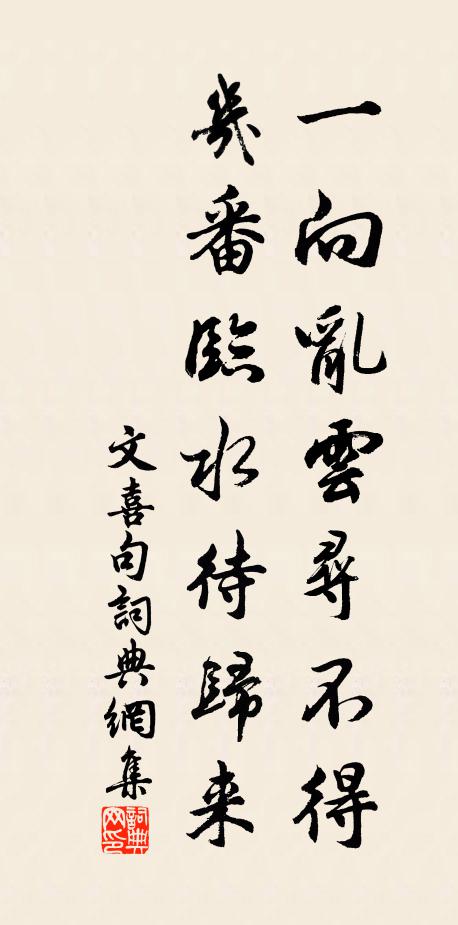 一向亂雲尋不得
幾番臨水待歸来
文喜句詞典網集
詞典網印